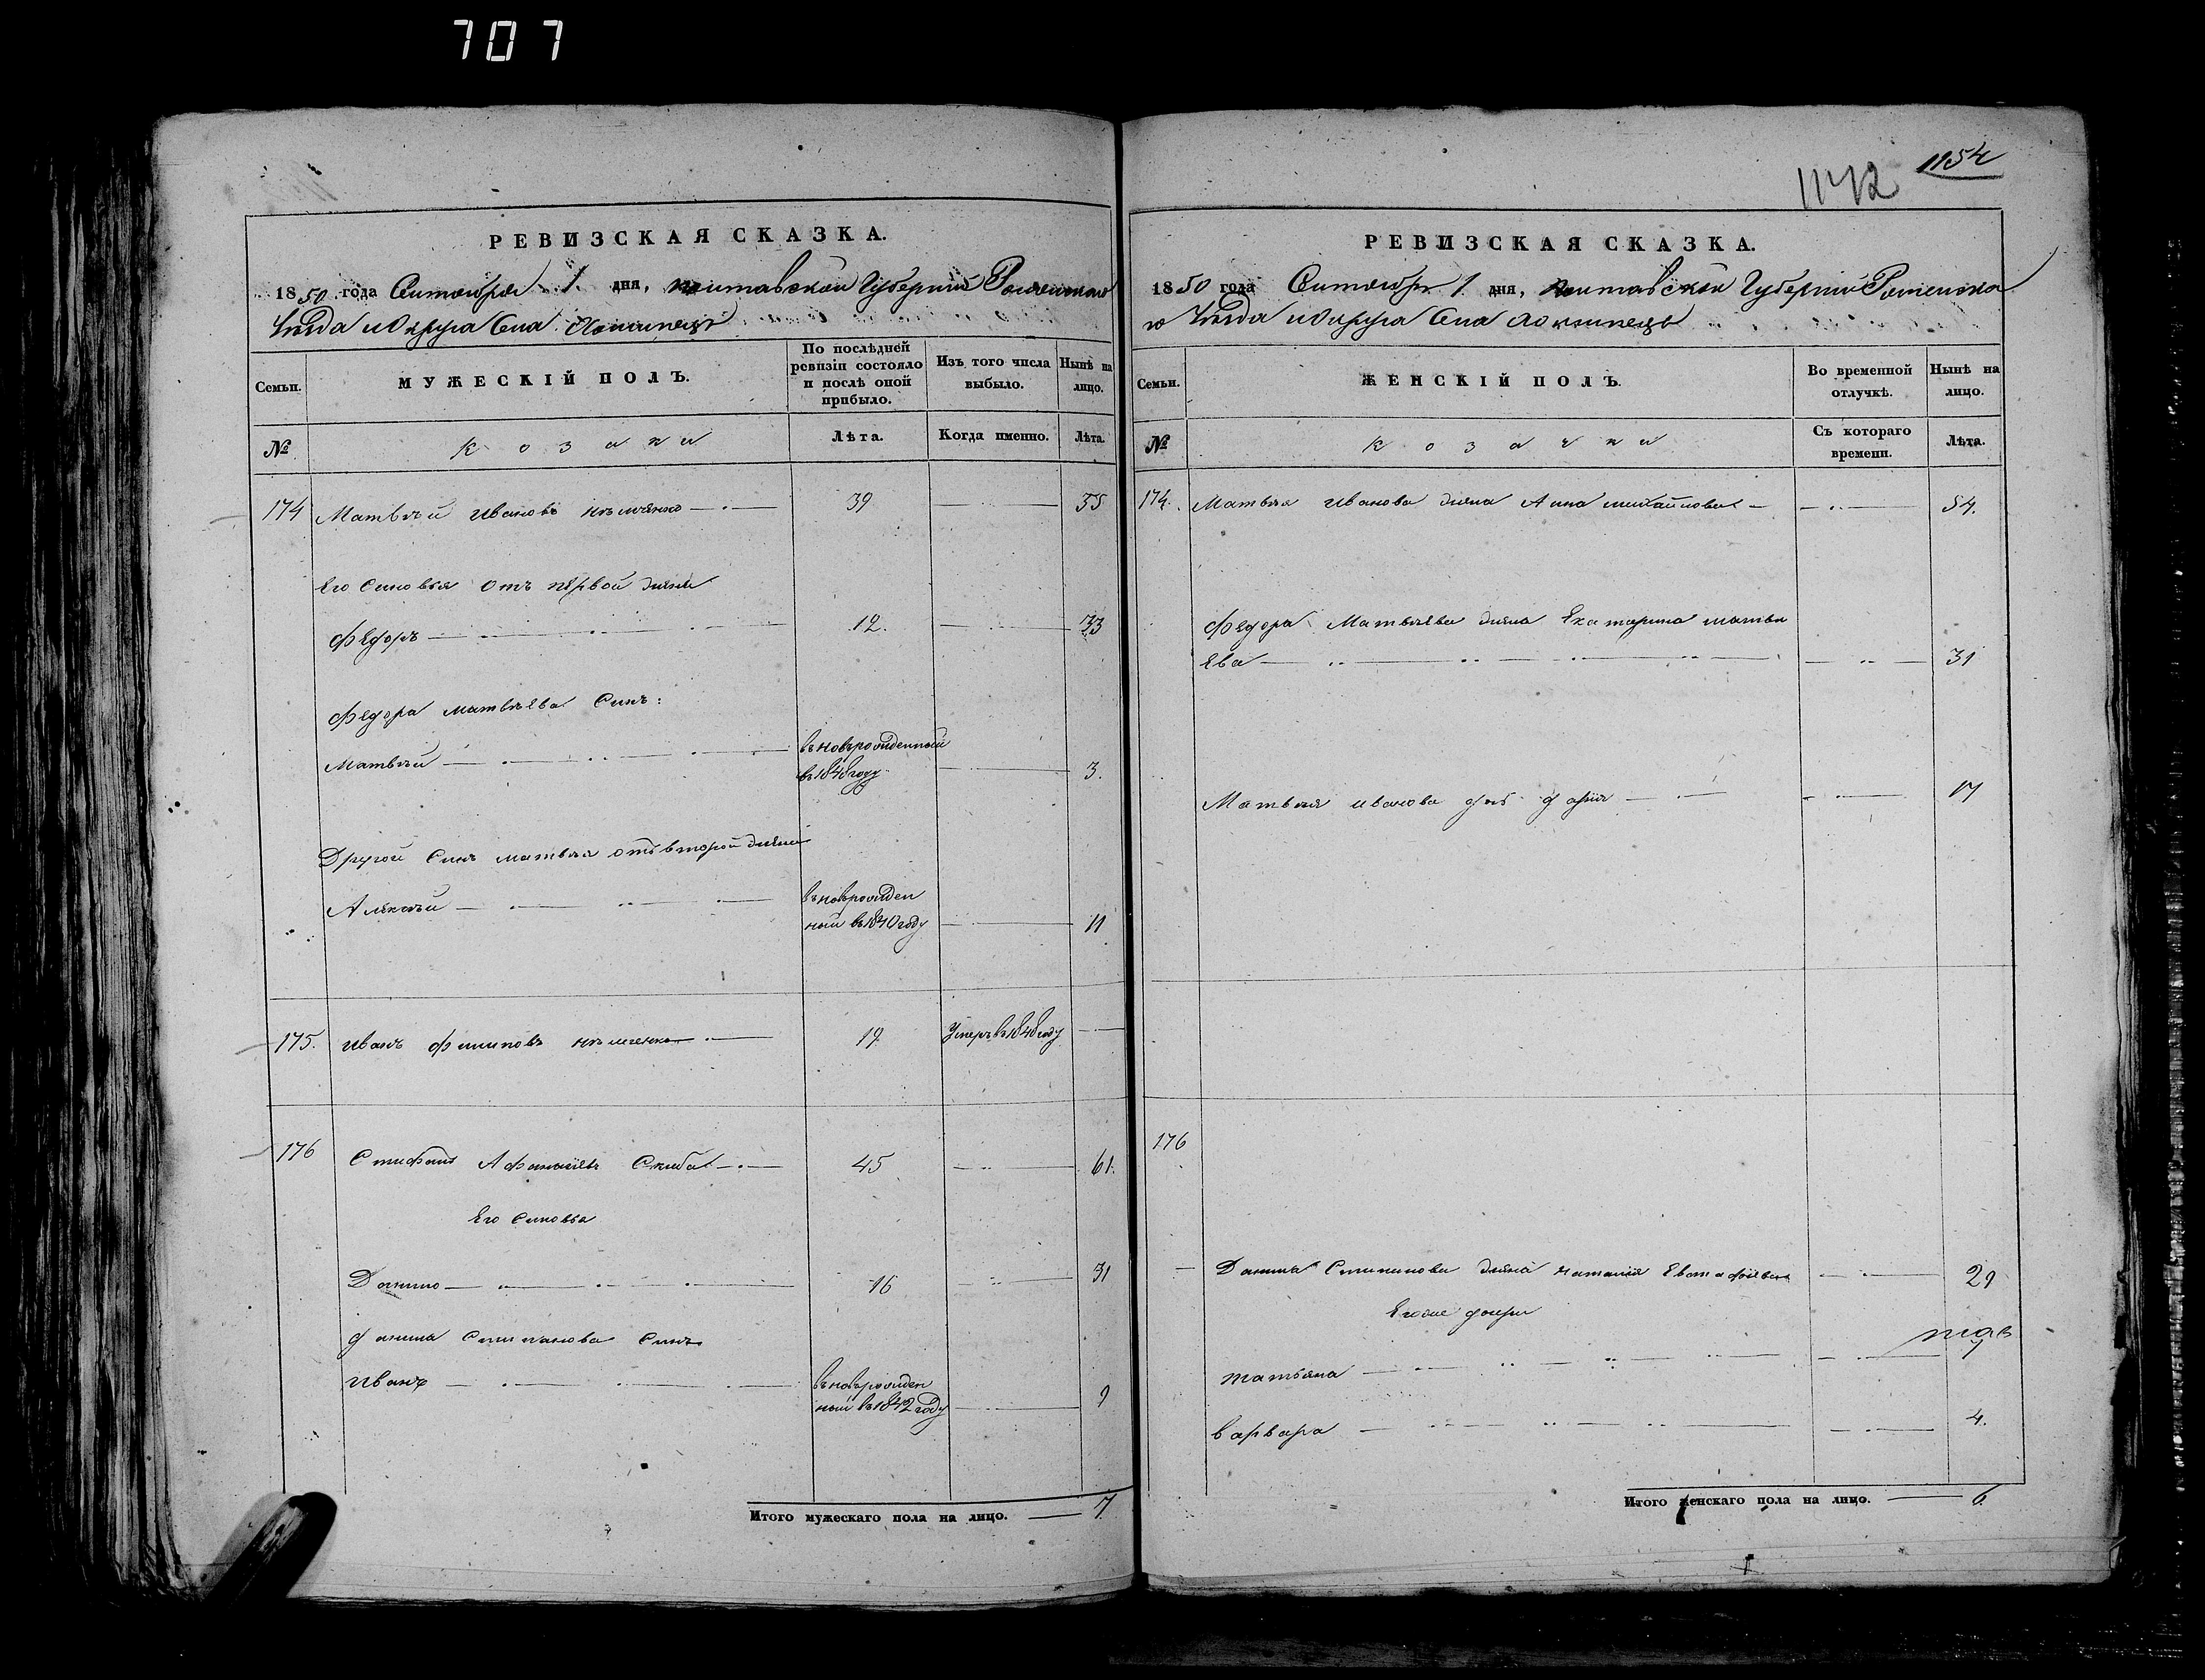 707
1154
1142
РЕВИЗСКАЯ СКАЗКА.
1850 года Сентября 1 дня, Полтавской Губерніи Роменского
Уезда и Округа Села
МУЖЕСКІЙ ПОЛЪ.
Семьи.
По послѣдней ревизіи состояло и послѣ оной прибыло.
Изъ того числа выбыло.
Нынѣ на лицо.
№
Козаки
Лѣта.
Когда именно.
Лѣта.
174 Матвѣй Ивановъ 39 55
Его Синовья отъ первой жены
Федоръ 12. 33
Федора Матвѣева Синъ:
Матвѣй вновърожденный
въ 1848 году 3.
Другой Синъ Матвѣя отъ второй жены
Алексѣй вновърожден
ный въ 1840 году 11
175. Иванъ Филиповъ 19 Умеръ въ 1848 году
176 Стефанъ Афанасіевъ Скиба 45 61.
Его Синовья
Данило 16 31
Данила Степанова Синъ
Иванъ вновърожден
ный въ 1842 году 9
Итого мужескаго пола на лицо. 7
РЕВИЗСКАЯ СКАЗКА.
1850 года Сентября 1 дня, Полтавской Губерніи Роменска
го Уезда и Округа Села
Семьи.
ЖЕНСКІЙ ПОЛЪ.
Во временной отлучкѣ.
Нынѣ на лицо.
№
Козачки
Съ котораго времени.
Лѣта.
174. Матвѣя Иванова жена Анна Михайлова 54.
Федора Матвѣева жена Екатерина Матвѣ
ева 31
Матвѣя Иванова дочь Дарія 17
176
Данила Степанова жена Наталія Евстафіева 29
Егоже дочери
Татьяна 7
Варвара 4.
Итого женскаго пола на лицо. 6